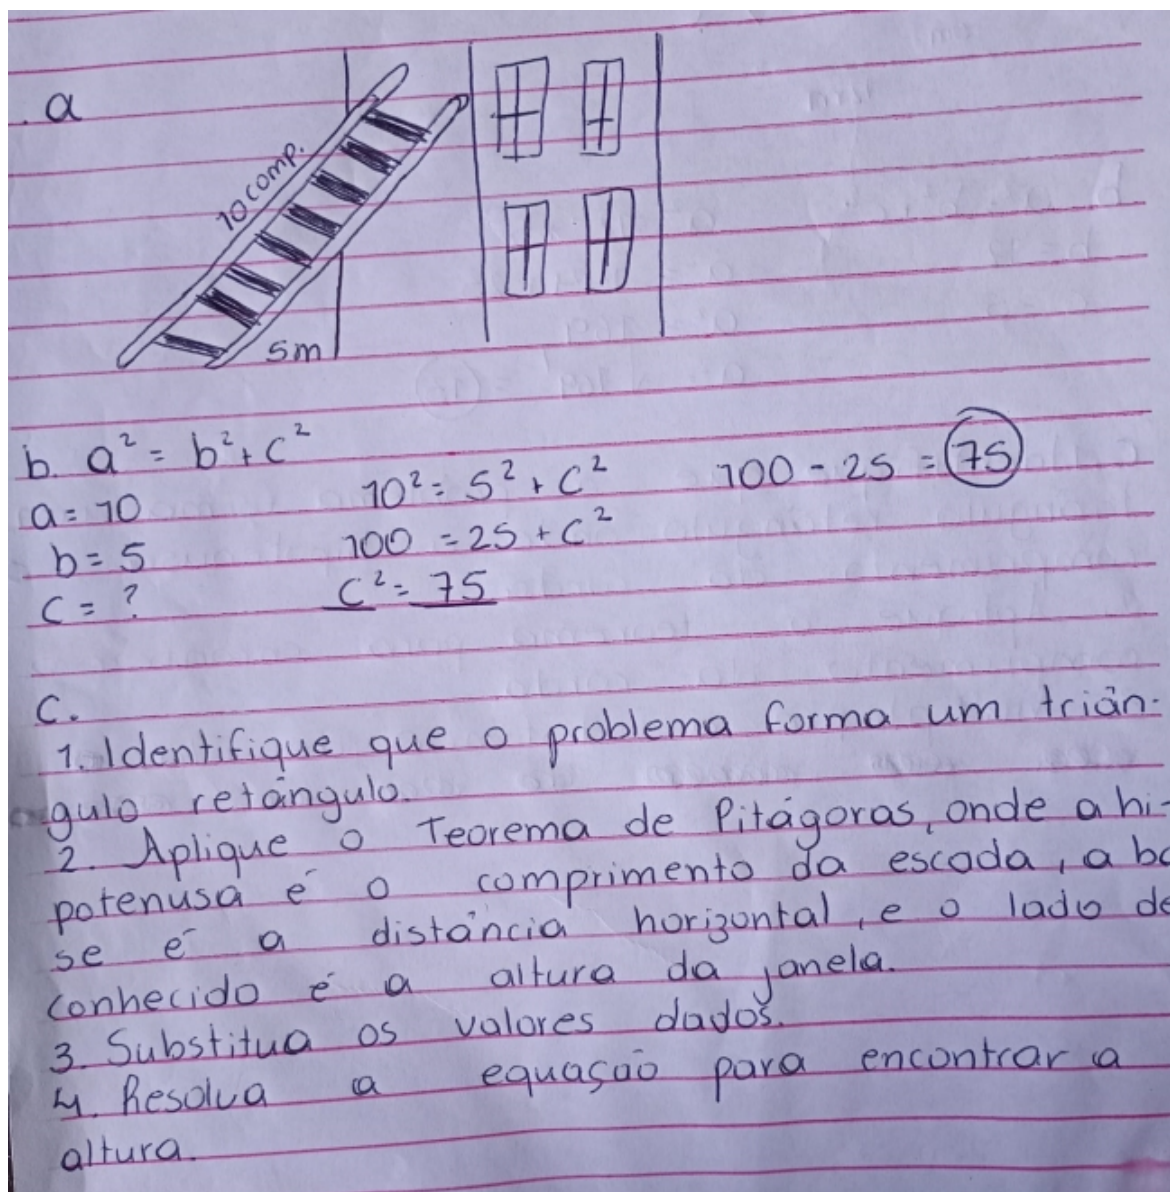 . a
10 comp.
5m
b. a² = b² + c²
a = 10
b = 5
c = ?
10² = 5² + c²
100 = 25 + c²
c² = 75
100 - 25 = 75
C.
1. Identifique que o problema forma um triân-
gulo retângulo.
2. Aplique o Teorema de Pitágoras, onde a hi-
potenusa é o comprimento da escada, a ba
se é a distância horizontal, e o lado de
conhecido é a altura da janela.
3. Substitua os valores dados.
4. Resolva a equação para encontrar a
altura.